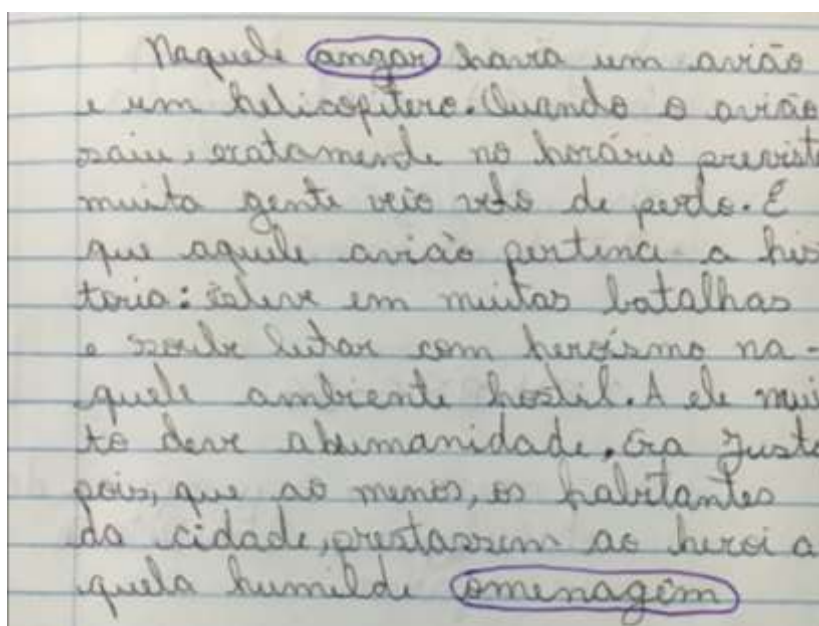 Naquele angar havia um avião
e um helicopitero. Quando o avião
saiu, exatamente no horário previsto
muita gente veio velo de perto. É
que aquele avião pertence a his
toria: esteve em muitas batalhas
e soube lutar com heroismo na-
quele ambiente hostil. A ele mui
to deve ahumanidade. Era justo
pois, que ao menos, os habitantes
da cidade, prestassem ao heroi a
quela humilde omenagêm